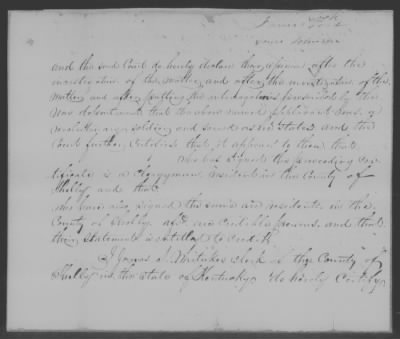 James Ford
and the said Court do hereby declare their opinion after the
investigation of the matter and after the investigation of the
matter and after putting the interrogatories prescribed by the
War department that the above named applicant was a
revolutionary soldier and served as he States and the
Court further Certifies that it appears to them that
who has Signed the preceeding cer
tificate is a Clergyman resident in the County of
Shelby and that
who have also signed the same are residents in the
County of Shelby and are credible persons and that
their Statement is intitled to Credit
I James S. Whitaker Clerk of the County of
Shelby in the State of Kentucky do hereby Certify